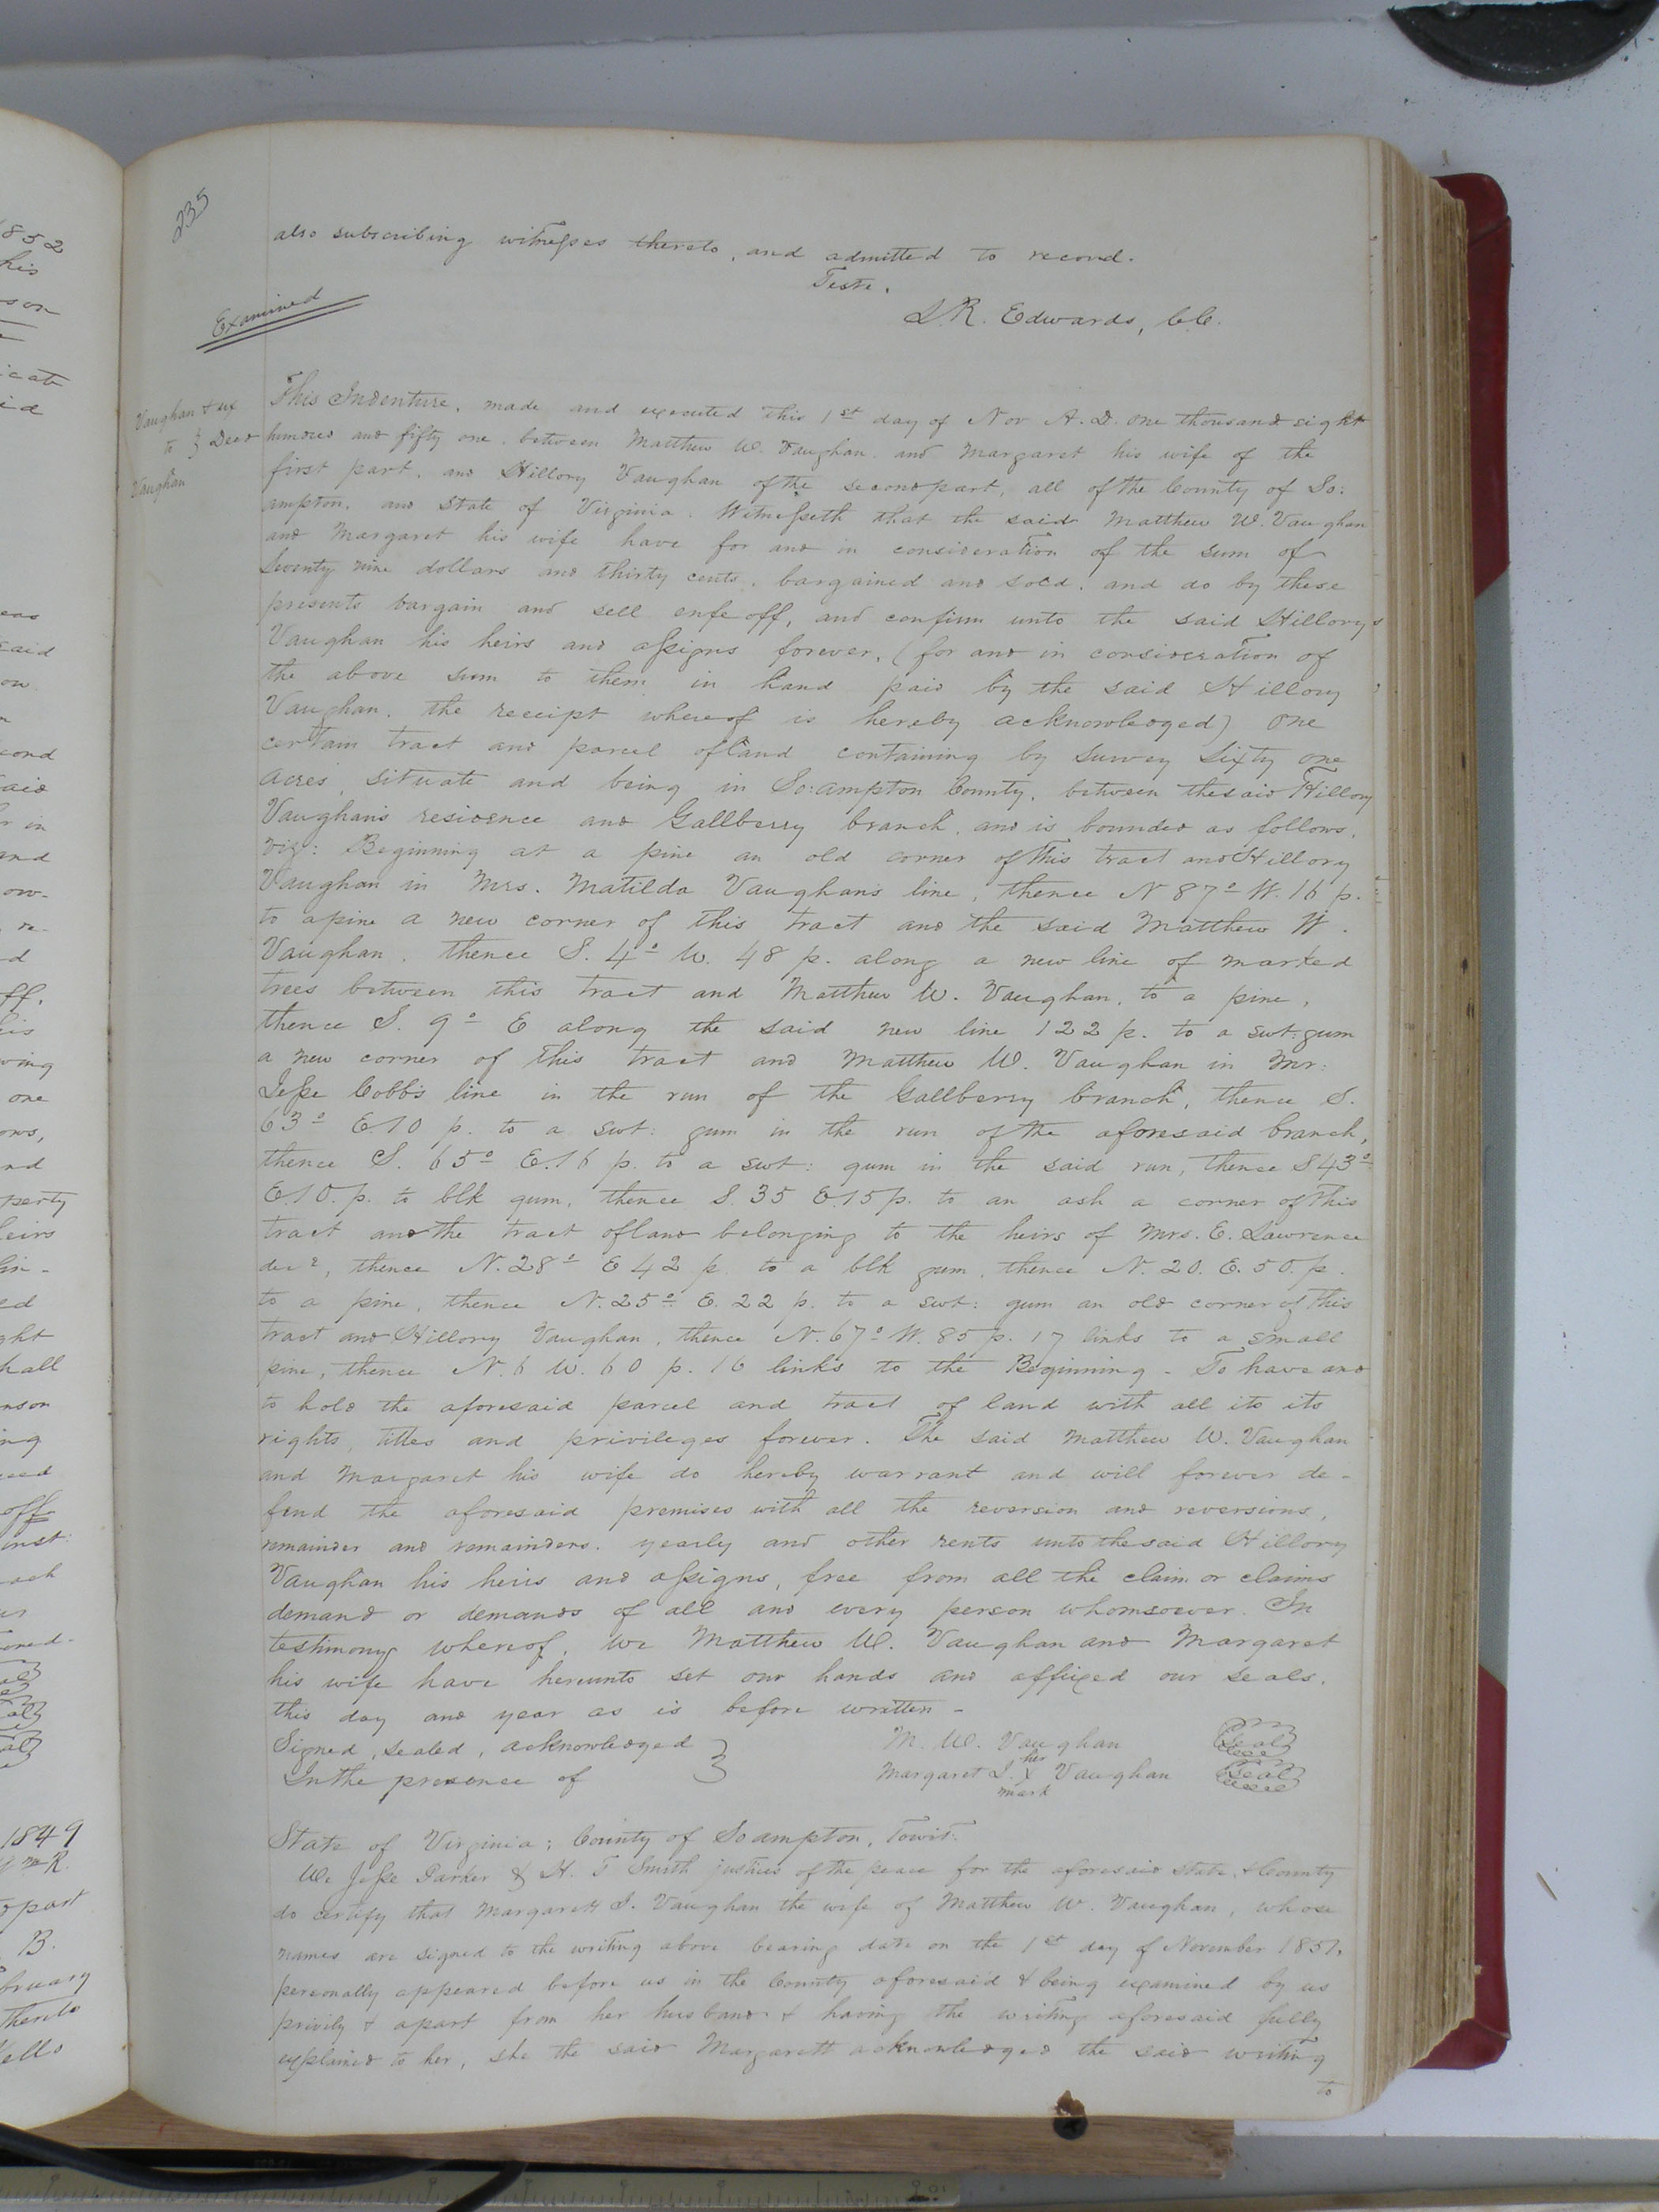 235
also subscribing witnesses thereto, and admitted to record.
Teste.
L. R. Edwards, C.C.
Examined
Vaughan & ux
to } Deed
Vaughan
This Indenture, made and executed this 1st day of Nov A.D. one thousand eight
hundred and fifty one, between Matthew W. Vaughan, and Margaret his wife of the
first part, and Hillory Vaughan of the second part, all of the County of So:
ampton, and State of Virginia. Witnesseth that the said Matthew W. Vaughan
and Margaret his wife have for and in consideration of the sum of
Seventy nine dollars and thirty cents, bargained and sold, and do by these
presents bargain and sell enfeoff, and confirm unto the said Hillory
Vaughan his heirs and assigns forever, (for and in consideration of
the above sum to them in hand paid by the said Hillory
Vaughan, the receipt whereof is hereby acknowledged) One
certain tract and parcel of land containing by survey Sixty one
acres, situate and being in So:ampton County, between the said Hillory
Vaughan's residence and Gallberry branch, and is bounded as follows,
viz: Beginning at a pine an old corner of this tract and Hillory
Vaughan in Mrs. Matilda Vaughan's line, thence N 87° W. 16 p.
to a pine a new corner of this tract and the said Matthew W.
Vaughan, thence S. 4° W. 48 p. along a new line of marked
trees between this tract and Matthew W. Vaughan, to a pine,
thence S. 9° E along the said new line 122 p. to a swt: gum
a new corner of this tract and Matthew W. Vaughan in Mr:
Jesse Cobb's line in the run of the Gallberry branch, thence S.
63° E. 10 p. to a swt: gum in the run of the aforesaid branch,
thence S. 65° E. 16 p. to a swt: gum in the said run, thence S 43°
E. 10. p. to blk gum, thence S. 35 E. 15 p. to an ash a corner of this
tract and the tract of land belonging to the heirs of Mrs. E. Lawrence
decd, thence N. 28° E 42 p. to a blk gum, thence N. 20. E. 50. p.
to a pine, thence N. 25° E. 22 p. to a swt: gum an old corner of this
tract and Hillory Vaughan, thence N. 67° W. 85 p. 17 links to a small
pine, thence N. 6 W. 60 p. 16 links to the Beginning - To have and
to hold the aforesaid parcel and tract of land with all its its
rights, titles and privileges forever. The said Matthew W. Vaughan
and Margaret his wife do hereby warrant and will forever de-
fend the aforesaid premises with all the reversion and reversions,
remainder and remainders, yearly and other rents unto the said Hillory
Vaughan his heirs and assigns, free from all the claim or claims
demand or demands of all and every person whomsoever. In
testimony whereof, we Matthew W. Vaughan and Margaret
his wife have hereunto set our hands and affixed our seals,
this day and year as is before written -
Signed, sealed, acknowledged }
In the presence of
M. W. Vaughan Seal
her
Margaret J. X Vaughan Seal
mark
State of Virginia; County of So ampton, Towit:
We Jesse Parker & H. T. Smith justices of the peace for the aforesaid state, & County
do certify that Margarett J. Vaughan the wife of Matthew W. Vaughan, whose
names are signed to the writing above bearing date on the 1st day of November 1851,
personally appeared before us in the County aforesaid & being examined by us
privily & apart from her husband & having the writing aforesaid fully
explained to her, she the said Margarett acknowledged the said writing
to